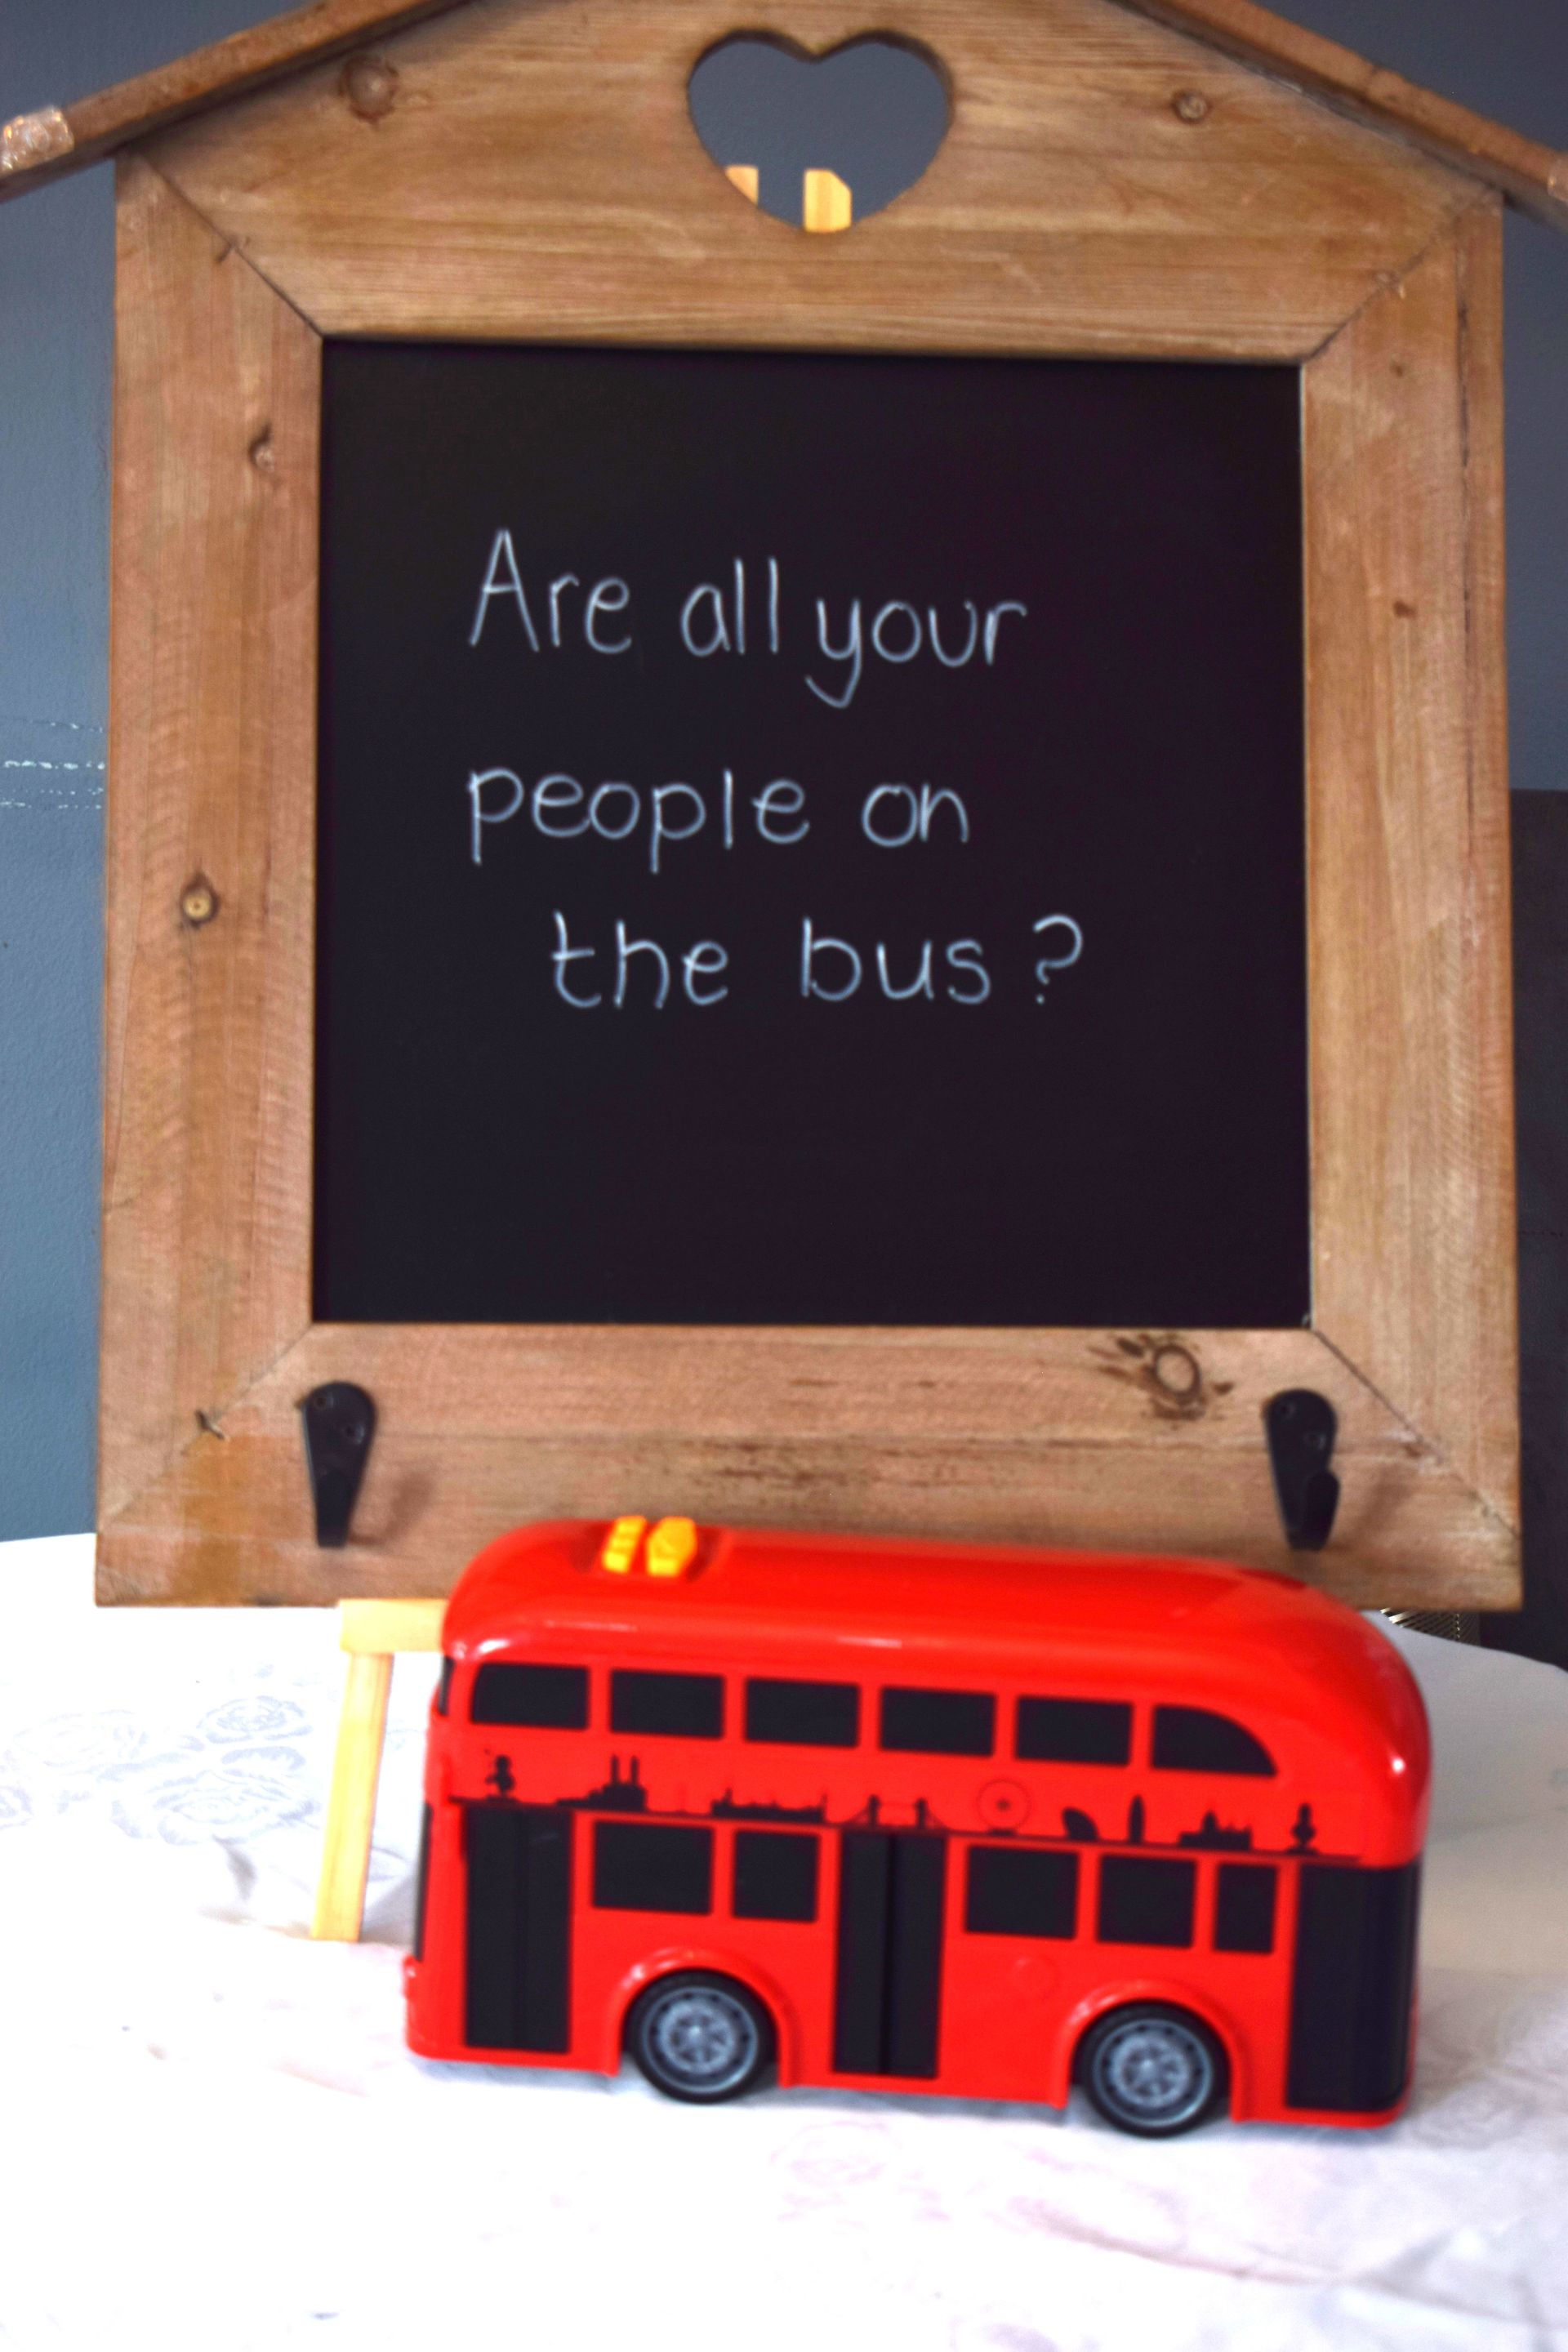 Are all your
people on
the bus?